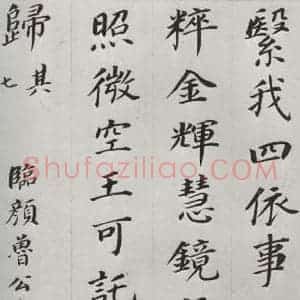 繄我四依事
粹金輝慧鏡
照微空王可託
歸其七
臨顏魯公
Shufaziliao.COM